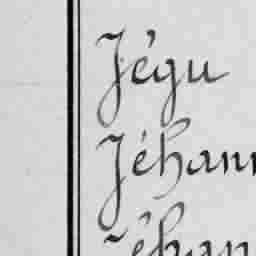 Jégu
Jéhan